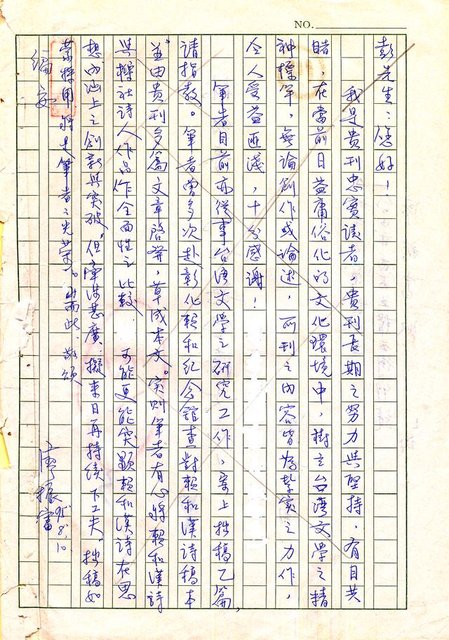 NO.
彭先生：您好！
我是貴刊忠實讀者，貴刊長期之努力與堅持，有目共
睹，在當前日益庸俗化的文化環境中，樹立台灣文學之精
神標竿，無論創作或論述，所刊之內容皆為紮實之力作，
令人受益匪淺，十分感謝！
筆者目前亦從事台灣文學之研究工作，寄上拙稿乙篇，
請指教。筆者曾多次赴彰化賴和紀念館查對賴和漢詩稿本
並由貴刊多篇文章啓發，草成本文。實則筆者有心將賴和漢詩
與櫟社詩人作品作全面性之比較，可能更能突顯賴和漢詩在思
想內涵上之創新與突破。但牽涉甚廣，擬來日再持續下工夫。拙稿如
蒙採用將是筆者之光榮。耑此，敬頌
編安
廖振富
95.8.10